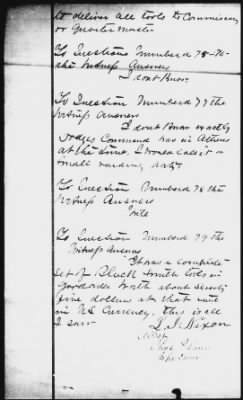 to deliver all tools to Commissary
or Quartermaster
To Questions Numbered 75-76-
the Witness Answers
I dont Know
To Question Numbered 77 the
Witness Answers
I dont Know exactly
Dodges Command was in Athens
at the time, I would call it a
small raiding party
To Question Numbered 78 the
Witness Answers
Nile
To Question Numbered 79 the
Witness Answers
It was a complete
set of Black Smith tools in
good order Worth about Seventy
five dollars at that time
in U.S. Currency. this is all
I saw
L. J. Nixon
Attest